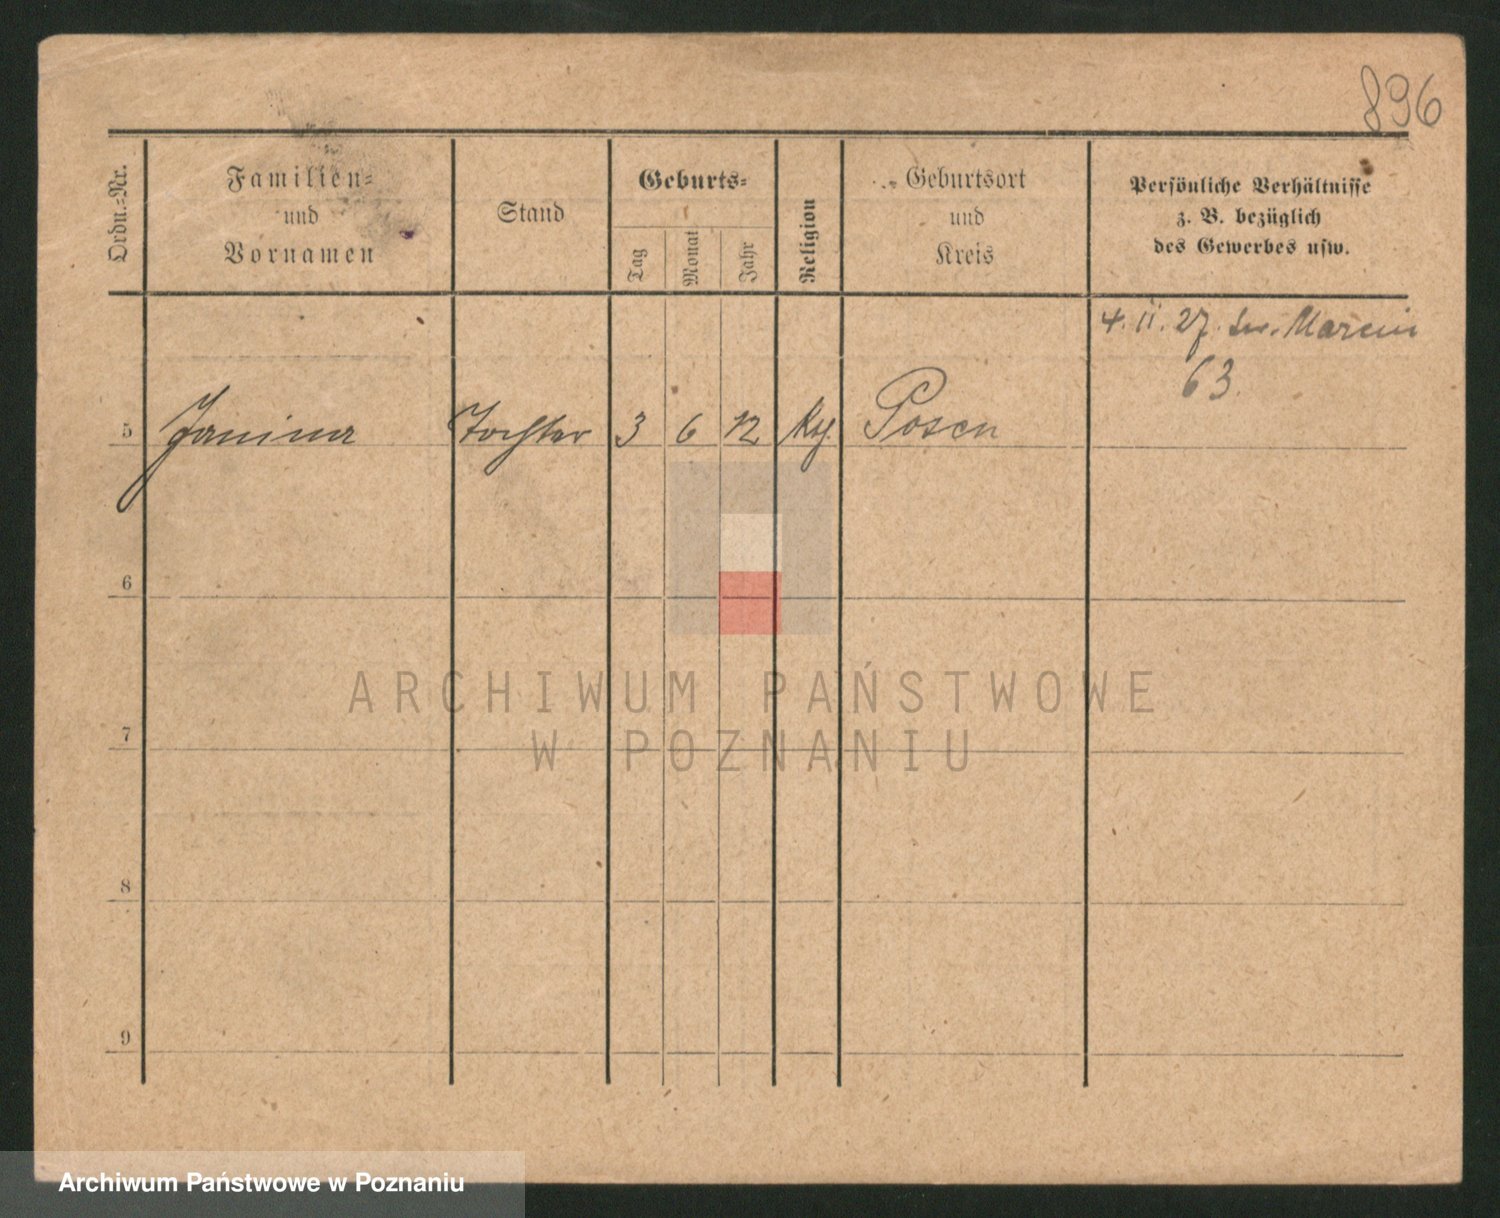 896
Ordn.-Nr.
Familien-
und
Vornamen
Stand
Geburts-
Tag
Monat
Jahr
Religion
Geburtsort
und
Kreis
Persönliche Verhältnisse
z. B. bezüglich
des Gewerbes usw.
4. II. 27. św. Marcin
63
5 Janina Tochter 3 6 12 Posen
6
7
8
9
ARCHIWUM PAŃSTWOWE
W POZNANIU
Archiwum Państwowe w Poznaniu